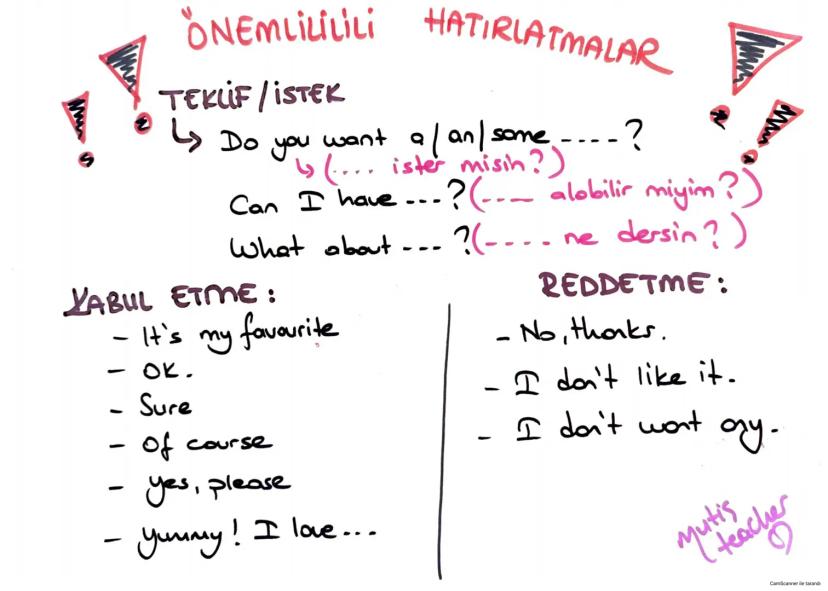 ÖNEMLİLİLİLİ HATIRLATMALAR
TEKLİF / İSTEK
↳ Do you want a / an / some ----?
↳ (.... ister misin?)
Can I have ---? (---- alabilir miyim?)
What about ---? (---- ne dersin?)
KABUL ETME:
- It's my favourite
- OK.
- Sure
- Of course
- yes, please
- yummy! I love...
REDDETME:
- No, thanks.
- I don't like it.
- I don't want any.
Mutiş
teacher
CamScanner ile tarandı